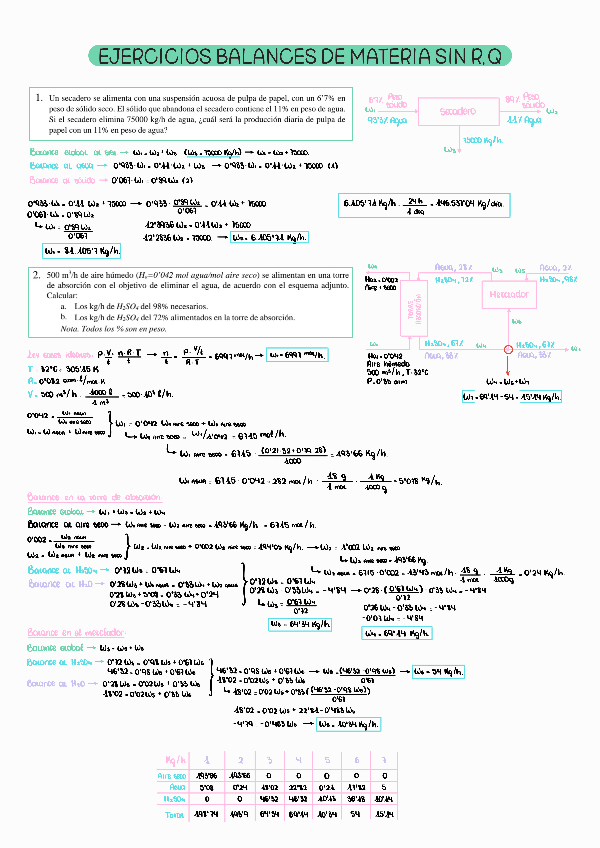 EJERCICIOS BALANCES DE MATERIA SIN R,Q
1. Un secadero se alimenta con una suspensión acuosa de pulpa de papel, con un 6'7% en
peso de sólido seco. El sólido que abandona el secadero contiene el 11% en peso de agua.
Si el secadero elimina 75000 kg/h de agua, ¿cuál será la producción diaria de pulpa de
papel con un 11% en peso de agua?
6'7% Peso sólido
W₁
93'3% Agua
Secadero
89% Peso sólido
W₂
11% Agua
75000 Kg/h.
W₃
Balance Global al → W₁ = W₂ + W₃ (W₃ = 75000 Kg/h) → W₁ = W₂ + 75000.
Balance al agua → 0'933·W₁ = 0'11·W₂ + W₃ → 0'933·W₁ = 0'11·W₂ + 75000 (1)
Balance al sólido → 0'067·W₁ = 0'89 W₂ (2)
0'933·W₁ = 0'11 W₂ + 75000 → 0'933 · 0'89 W₂ / 0'067 = 0'11 W₂ + 75000
0'067·W₁ = 0'89 W₂
↳ W₁ = 0'89 W₂ / 0'067
12'3936 W₂ = 0'11 W₂ + 75000
12'2836 W₂ = 75000 → W₂ = 6.105'71 Kg/h.
W₁ = 81.105'7 Kg/h.
6.105'71 Kg/h · 24 h / 1 día = 146.537'04 Kg/día.
2. 500 m³/h de aire húmedo (Hₐ=0'042 mol agua/mol aire seco) se alimentan en una torre
de absorción con el objetivo de eliminar el agua, de acuerdo con el esquema adjunto.
Calcular:
a. Los kg/h de H₂SO₄ del 98% necesarios.
b. Los kg/h de H₂SO₄ del 72% alimentados en la torre de absorción.
Nota. Todos los % son en peso.
W₂
Ha₂ = 0'002
Aire + seco
AGUA, 28%
W₃
H₂SO₄, 72%
TORRE ABSORCIÓN
Mezclador
W₅
AGUA, 2%
H₂SO₄, 98%
W₆
W₁
Ha₁ = 0'042
Aire húmedo
500 m³/h, T=32ºC
H₂SO₄, 67%
AGUA, 33%
W₄
H₂SO₄, 67%
AGUA, 33%
W₇
W₄ = W₆ + W₇
W₇ = 69'14 - 54 = 15'14 Kg/h.
Ley gases ideales: P·V/t = n·R·T/t → n/t = P·V/t / R·T = 6997 mol/h → W₁ = 6997 mol/h.
T = 32ºC = 305'15 K
R = 0'082 atm·l/mol·K
V = 500 m³/h · 1000 l / 1 m³ = 500·10³ l/h.
0'042 = W₁ AGUA / W₁ AIRE SECO
W₁ = W₁ AGUA + W₁ AIRE SECO
W₁ = 0'042 W₁ AIRE SECO + W₁ AIRE SECO
↳ W₁ AIRE SECO = W₁/1'042 = 6715 mol/h.
↳ W₁ AIRE SECO = 6715 · (0'21·32 + 0'79·28) / 1000 = 193'66 Kg/h.
W₁ AGUA = 6715 · 0'042 = 282 mol/h · 18 g / 1 mol · 1 Kg / 1000 g = 5'078 Kg/h.
Balance en la torre de absorción
Balance Global → W₁ + W₃ = W₂ + W₄
Balance al aire seco → W₁ AIRE SECO = W₂ AIRE SECO = 193'66 Kg/h = 6715 mol/h.
0'002 = W₂ AGUA / W₂ AIRE SECO
W₂ = W₂ AGUA + W₂ AIRE SECO
W₂ = W₂ AIRE SECO + 0'002 W₂ AIRE SECO = 194'05 Kg/h. → W₂ = 1'002 W₂ AIRE SECO
↳ W₂ AIRE SECO = 193'66 Kg.
↳ W₂ AGUA = 6715·0'002 = 13'43 mol/h · 18 g / 1 mol · 1 Kg / 1000g = 0'24 Kg/h.
Balance al H₂SO₄ → 0'72 W₃ = 0'67 W₄
Balance al H₂O → 0'28 W₃ + W₁ AGUA = 0'33 W₄ + W₂ AGUA
0'28 W₃ + 5'08 = 0'33 W₄ + 0'24
0'28 W₃ - 0'33 W₄ = -4'84
0'72 W₃ = 0'67 W₄
0'28 W₃ - 0'33 W₄ = -4'84 → 0'28 · (0'67 W₄) / 0'72 - 0'33 W₄ = -4'84
↳ W₃ = 0'67 W₄ / 0'72
0'26 W₄ - 0'33 W₄ = -4'84
-0'07 W₄ = -4'84
W₃ = 64'34 Kg/h.
W₄ = 69'14 Kg/h.
Balance en el mezclador:
Balance Global → W₃ = W₅ + W₆
Balance al H₂SO₄ → 0'72 W₃ = 0'98 W₅ + 0'67 W₆
46'32 = 0'98 W₅ + 0'67 W₆
Balance al H₂O → 0'28 W₃ = 0'02 W₅ + 0'33 W₆
18'02 = 0'02 W₅ + 0'33 W₆
46'32 = 0'98 W₅ + 0'67 W₆ → W₆ = (46'32 - 0'98 W₅) / 0'67 → W₆ = 54 Kg/h.
18'02 = 0'02 W₅ + 0'33 W₆
↳ 18'02 = 0'02 W₅ + 0'33 (46'32 - 0'98 W₅) / 0'67
18'02 = 0'02 W₅ + 22'81 - 0'483 W₅
-4'79 = -0'463 W₅ → W₅ = 10'34 Kg/h.
Kg/h 1 2 3 4 5 6 7
Aire seco 193'66 193'66 0 0 0 0 0
Agua 5'08 0'24 18'02 22'82 0'21 17'82 5
H₂SO₄ 0 0 46'32 46'32 10'13 36'18 10'14
Total 198'74 193'9 64'34 69'14 10'34 54 15'14